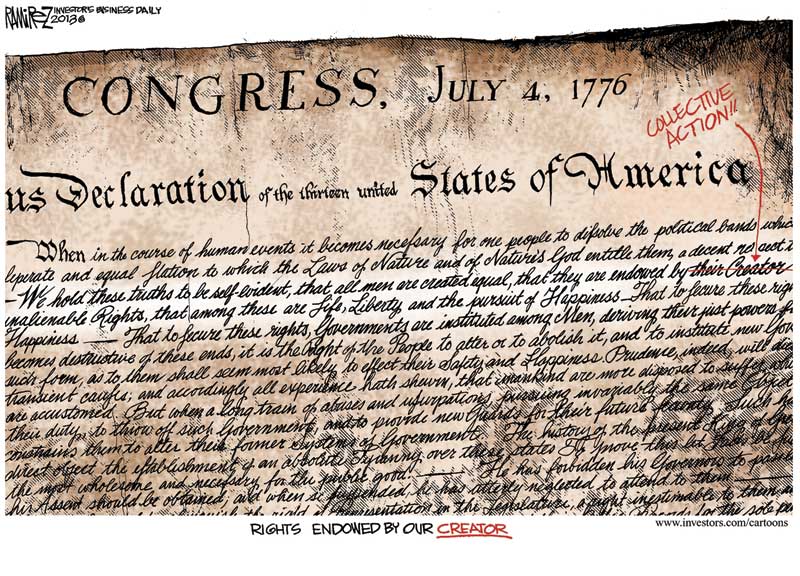 RAMIREZ INVESTOR'S BUSINESS DAILY
2013©
CONGRESS, JULY 4, 1776
COLLECTIVE
ACTION!!
us Declaration of the thirteen united States of America
When in the course of human events it becomes necefsary for one people to difsolve the political bands whic
seperate and equal station to which the Laws of Nature and of Nature's God entitle them, a decent
- We hold these truths to be self-evident, that all men are created equal, that they are endowed by their Creator
inalienable Rights, that among these are Life, Liberty and the pursuit of Happiness - That to secure these righ
Happiness — That to secure these rights, Governments are instituted among Men, deriving their just powers f
becomes destructive of these ends, it is the Right of the People to alter or to abolish it, and to institute new Gov
such form, as to them shall seem most likely to effect their Safety and Happiness. Prudence, indeed, will dic
transient causes; and accordingly all experience hath shewn, that mankind are more disposed to suffer, whi
are accustomed. But when a long train of abuses and usurpations, pursuing invariably the same Object
their duty, to throw off such Government, and to provide new Guards for their future
constrains them to alter their former Systems of Government. The history of the present King of
direct object the establishment of an absolute Tyranny over these states To prove this let
the most wholesome and necessary for the public good. — He has forbidden his Governors to pass
his Assent should be obtained; and when so suspended, he has utterly neglected to attend to them
the right of representation in the Legislature, a right inestimable to them
for the sole
RIGHTS ENDOWED BY OUR CREATOR
www.investors.com/cartoons